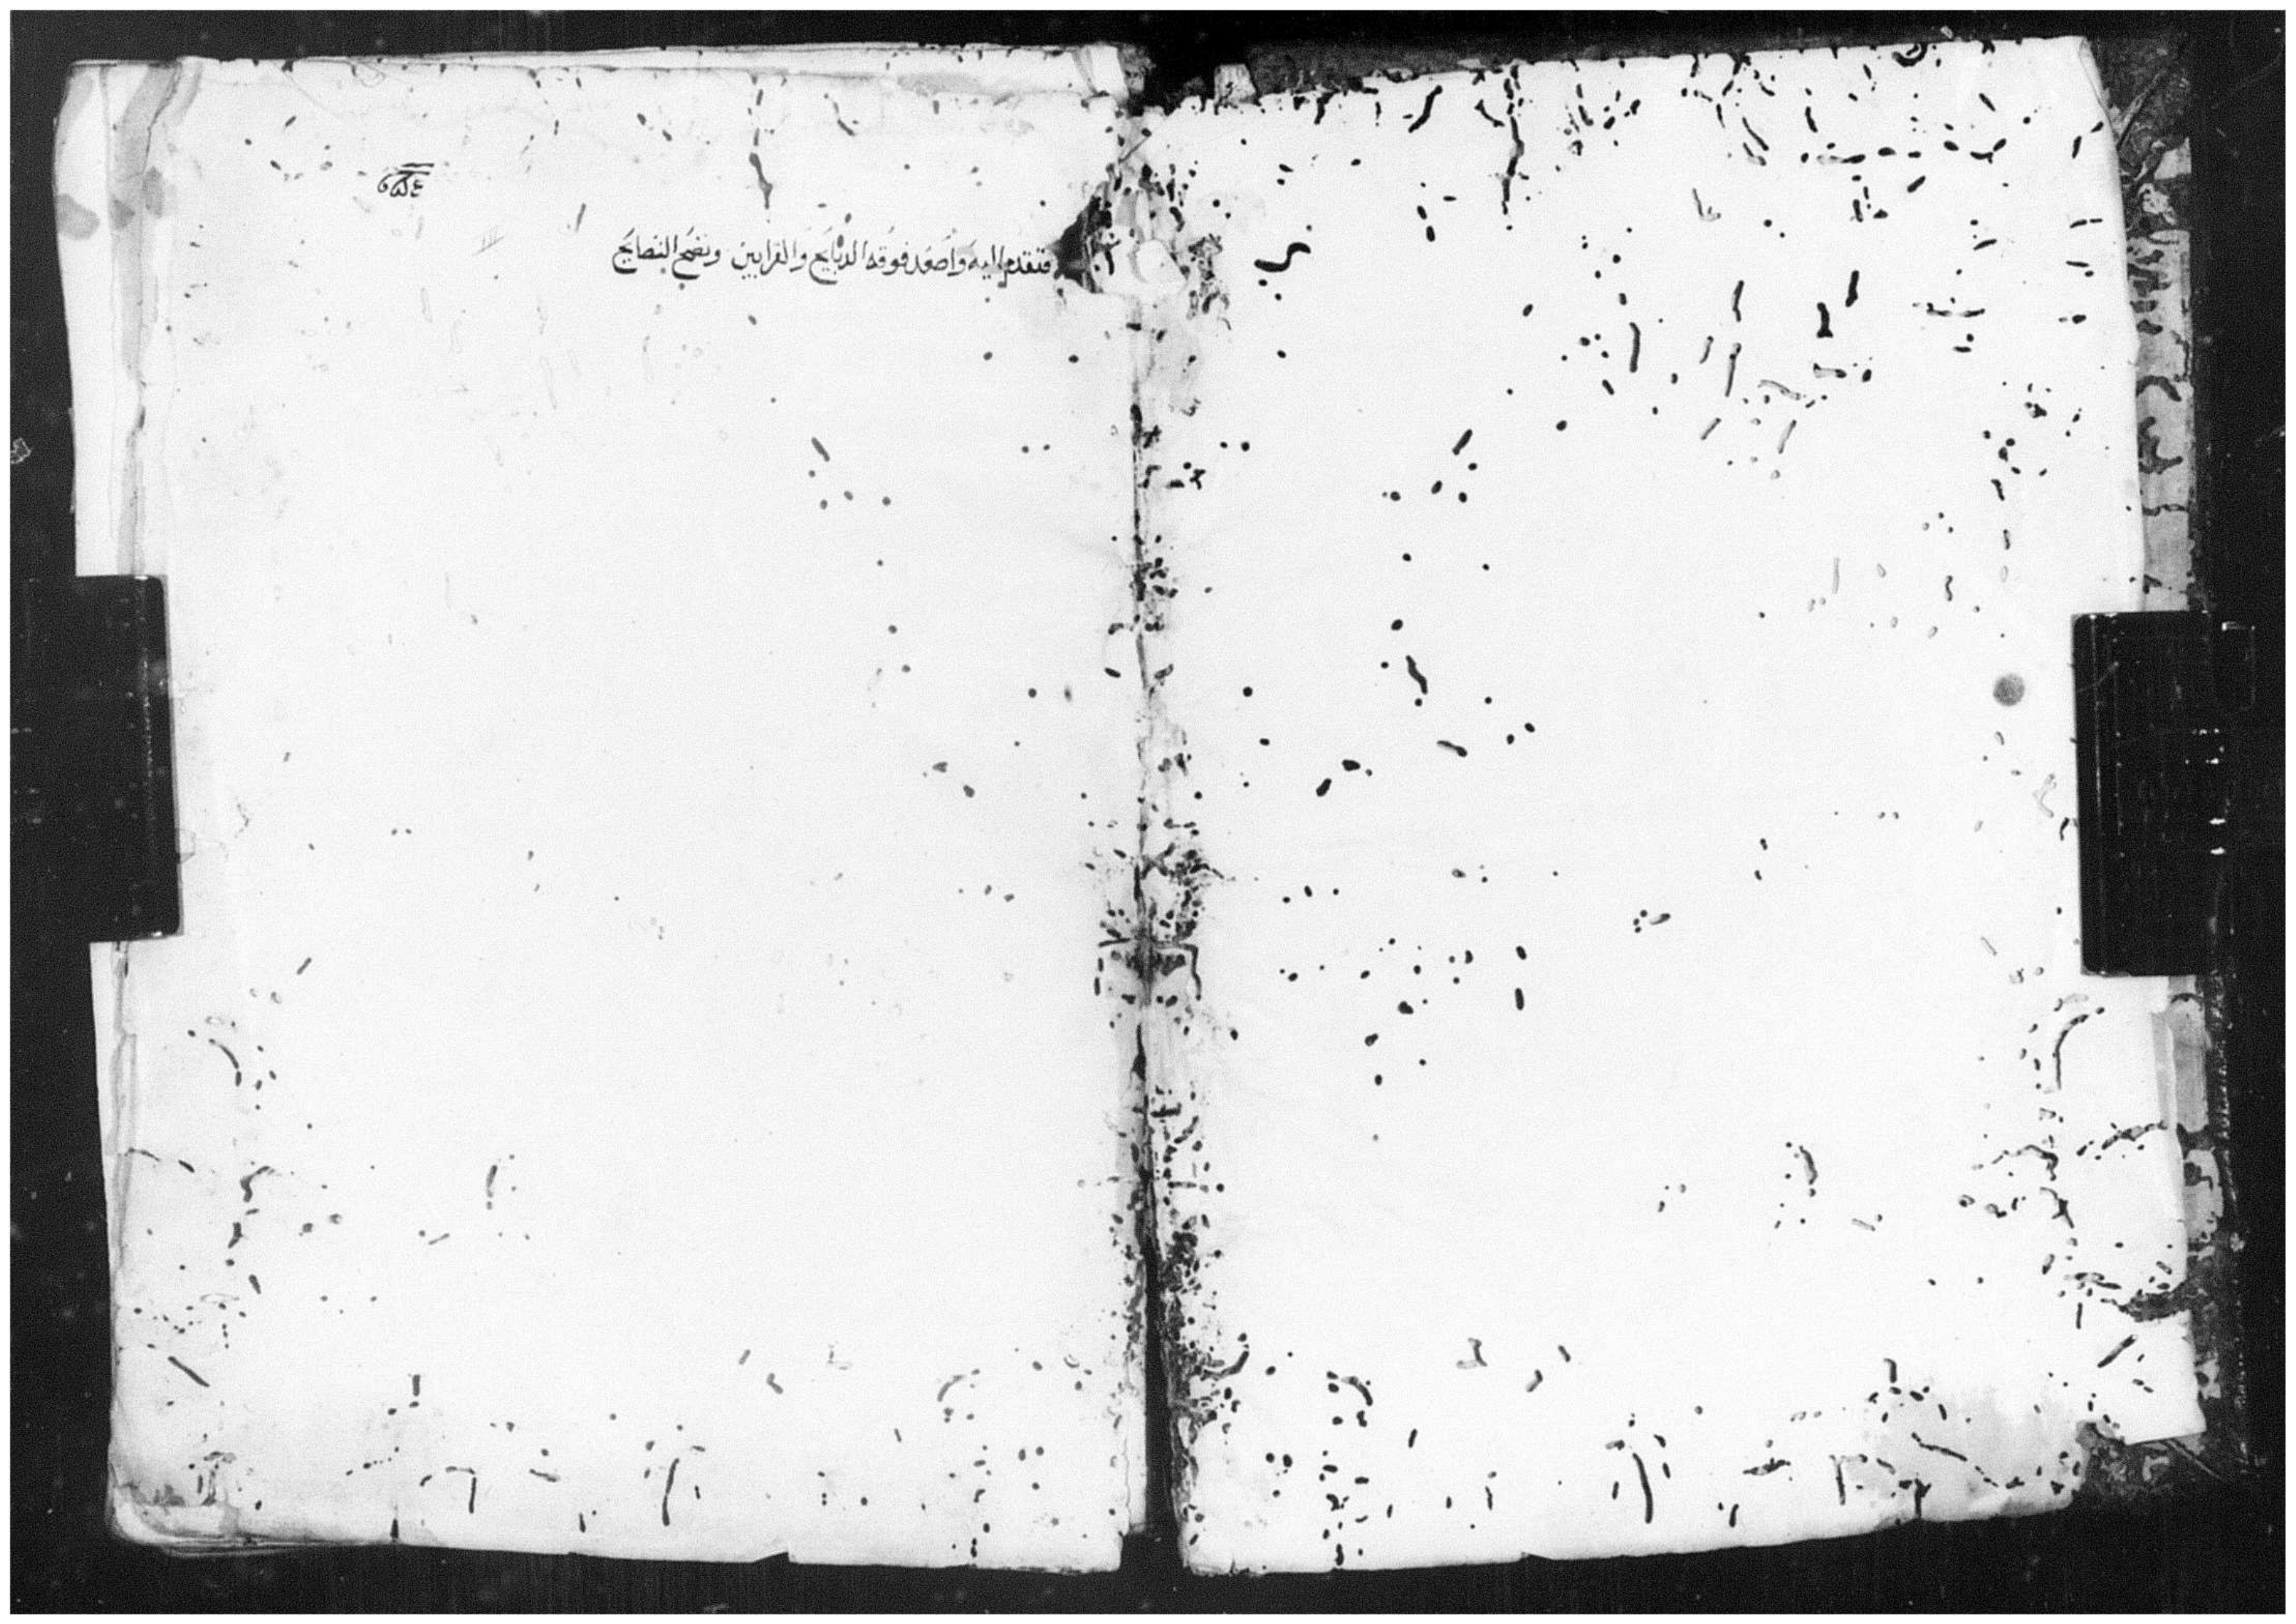 فتقدم اليه وَاصَعَد فوقه الدبَايح وَالقرابين ونضح النصايح